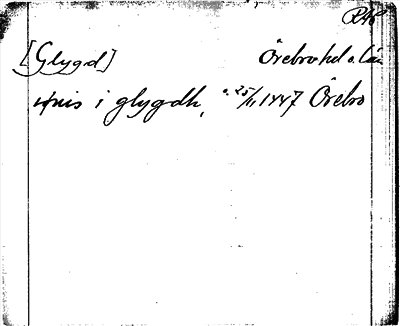 [Glygd] Örebro hd o. län
i glygdh, o. 25/11 1447 Örebro